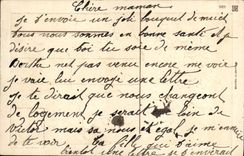 Chère maman
je t'envoie un joli bouquet de
nous nous sommes en bonne santé et je
désire que toi tu soie de même
Berthe net pas venu encore me voir
je vais lui envoyé une lettre
je te dirait que nous changeont
de logement je serait loin de
Victor mais sa nous et égal je m'ennui
de te voir ta fille qui t'aime
bientot une lettre